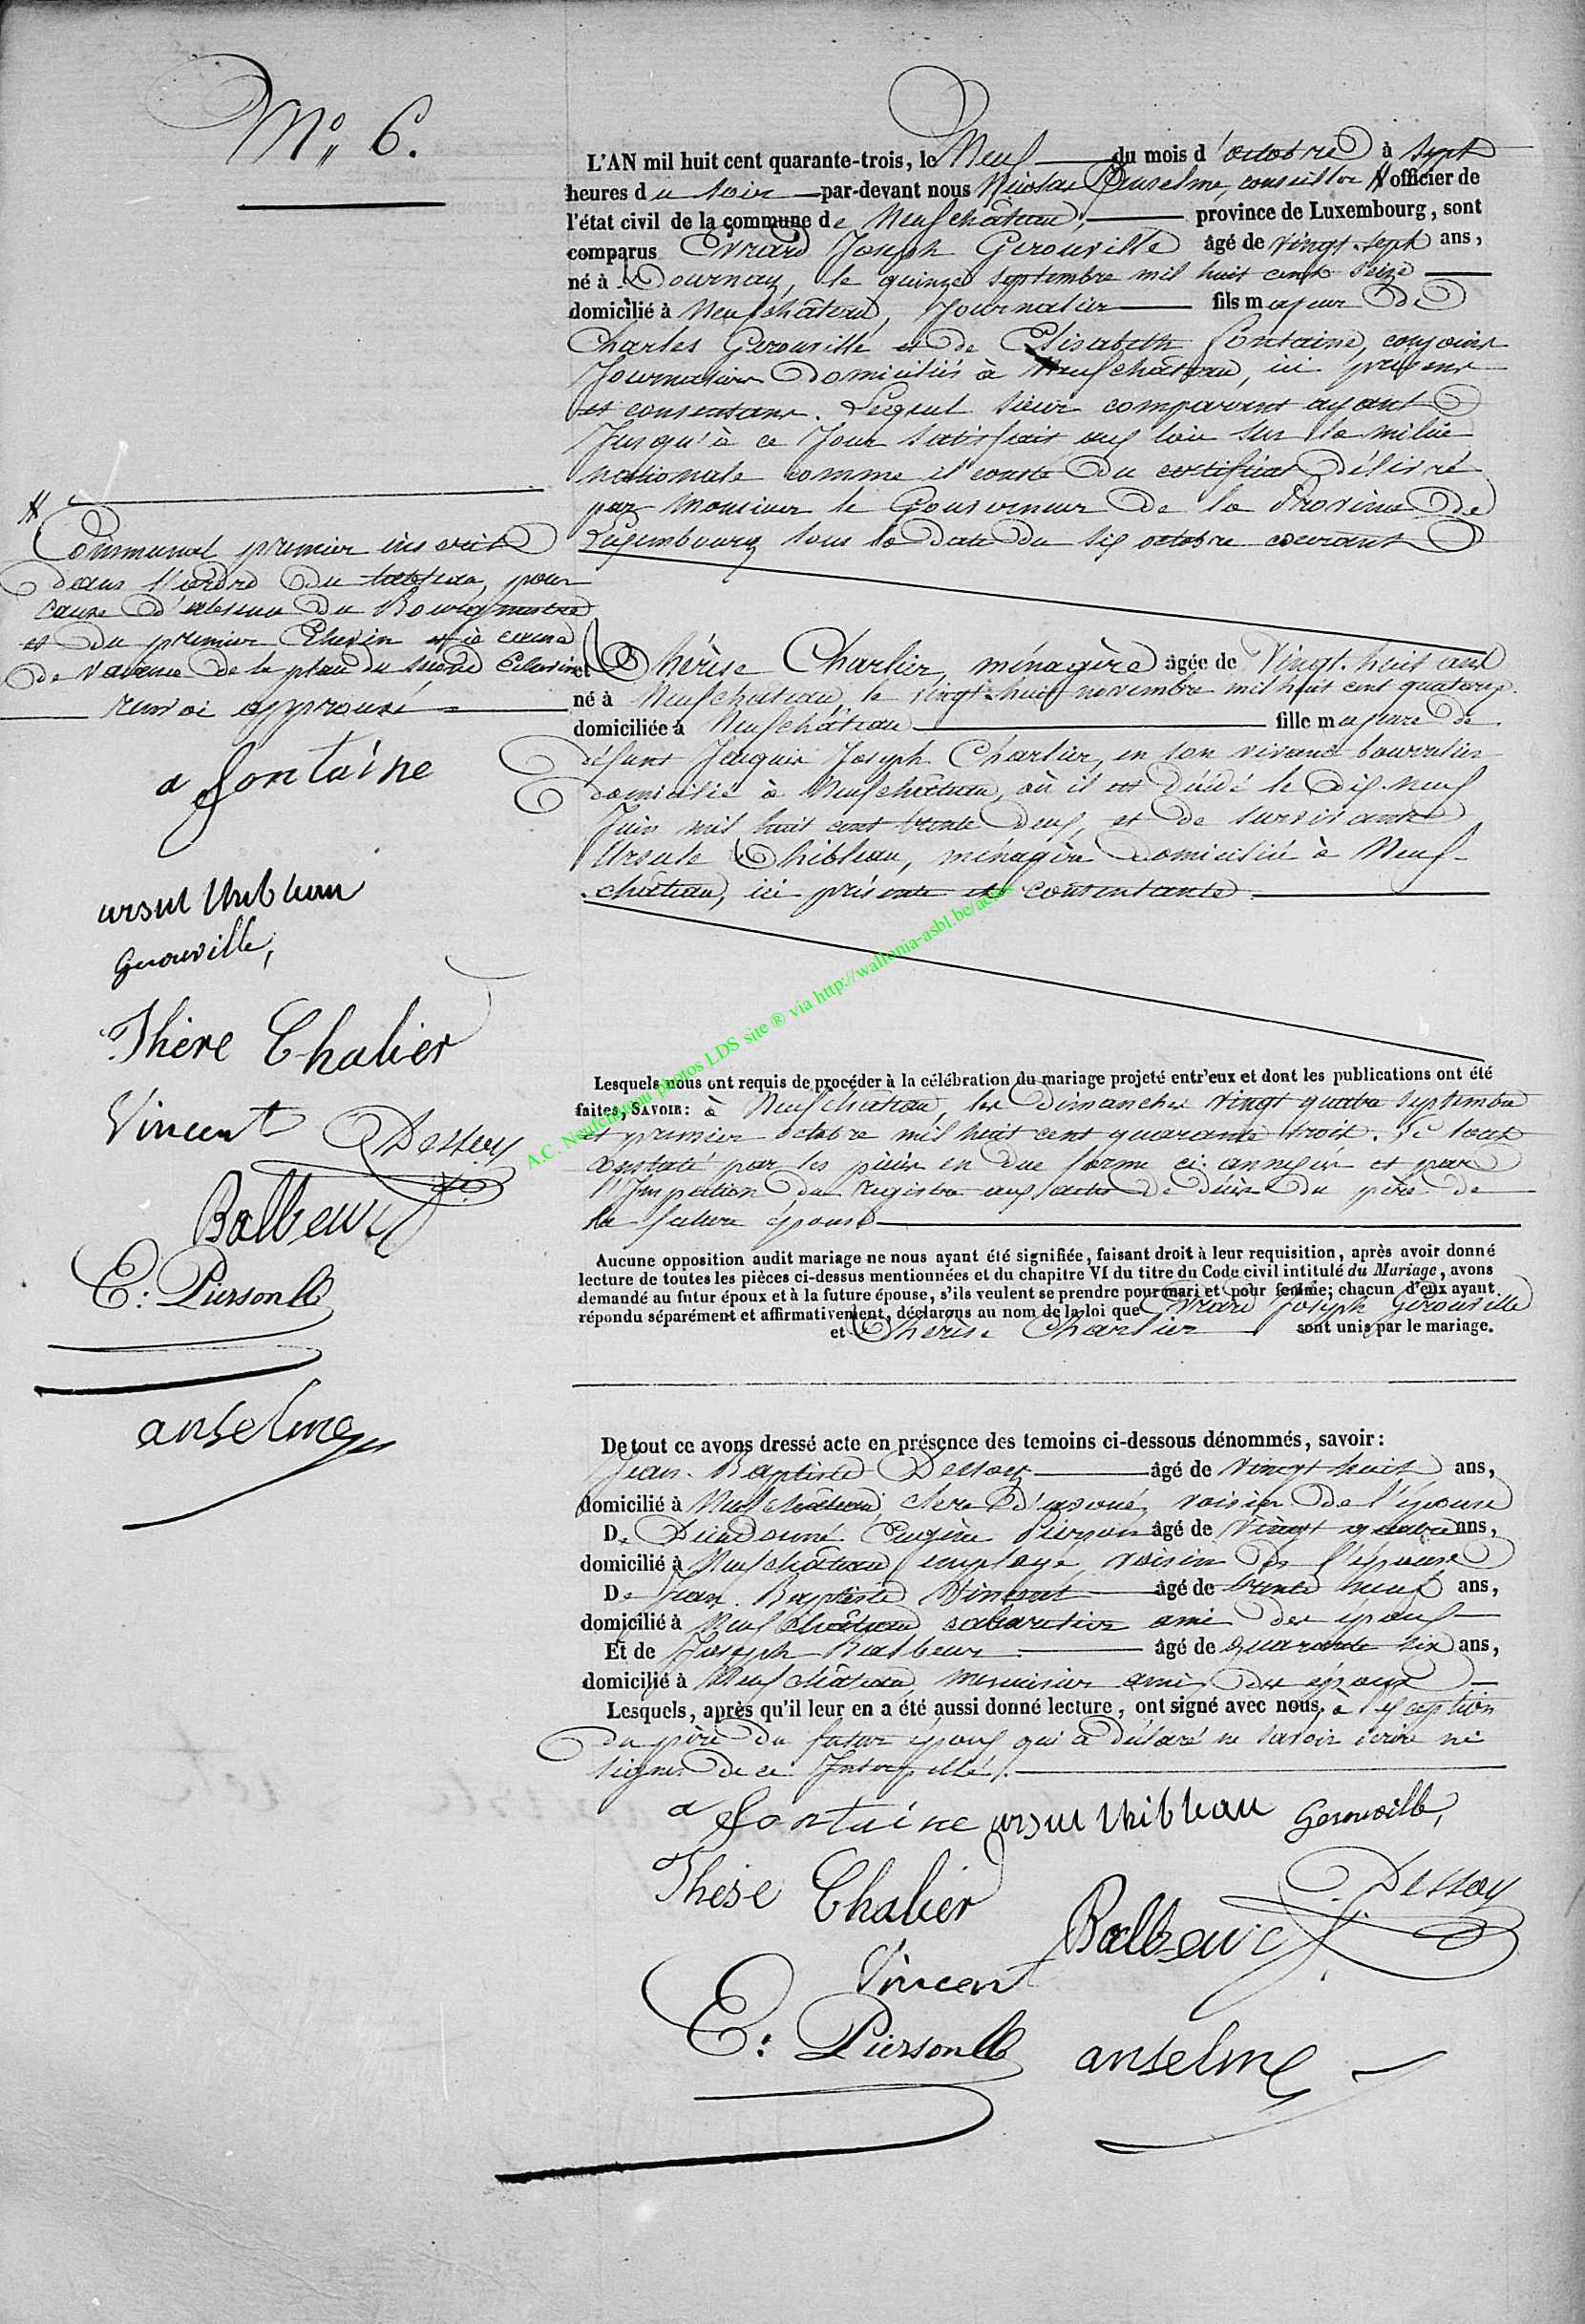 N° 6.
L'AN mil huit cent quarante-trois, le Neuf du mois d'octobre à sept
heures du soir par-devant nous Nicolas Anselme, conseiller # officier de
l'état civil de la commune de Neufchâteau, province de Luxembourg, sont
comparus Evrard Joseph Gerouville âgé de vingt-sept ans,
né à Tournay, le quinze septembre mil huit cent seize
domicilié à Neufchâteau, Journalier fils majeur de
Charles Gerouville et de Elisabeth fontaine, conjoints
Journaliers domiciliés à Neufchâteau, ici présens
et consentans. Lequel sieur comparant ayant
Jusqu'à ce Jour satisfait aux lois sur la milice
nationale comme il conste du certificat délivré
par Monsieur le Gouverneur de la Province de
Luxembourg sous la date du six octobre courant
et Thérèse Charlier, ménagère âgée de Vingt-huit ans
né à Neufchateau, le vingt-huit novembre mil huit cent quatorze
domiciliée à Neufchâteau fille majeure de
défunt Jacques Joseph Charlier, en son vivant bourrelier
domicilié à Neufchâteau, où il est décédé le dix-neuf
Juin mil huit cent trente deux, et de survivante
Ursule Thibleau, ménagère domiciliée à Neuf-
château, ici présente et consentante.
Lesquels nous ont requis de procéder à la célébration du mariage projeté entr'eux et dont les publications ont été
faites, SAVOIR: à Neufchâteau, les dimanches vingt quatre septembre
et premier octobre mil huit cent quarante trois. Le tout
constaté par les pièces en due forme ci-annexées et par
l'Inspection du registre aux actes de décès du père de
la future épouse
Aucune opposition audit mariage ne nous ayant été signifiée, faisant droit à leur requisition, après avoir donné
lecture de toutes les pièces ci-dessus mentionnées et du chapitre VI du titre du Code civil intitulé du Mariage, avons
demandé au futur époux et à la future épouse, s'ils veulent se prendre pour mari et pour femme; chacun d'eux ayant
répondu séparément et affirmativement, déclarons au nom de la loi que Evrard Joseph Gerouville
et Thérèse Charlier sont unis par le mariage.
De tout ce avons dressé acte en présence des temoins ci-dessous dénommés, savoir:
Jean-Baptiste Dessoy âgé de vingt huit ans,
domicilié à Neufchâteau, clerc d'avoué, voisin de l'épouse
De Dieudonné Eugène Pierson âgé de vingt quatre ans,
domicilié à Neufchâteau employé, voisin de l'épouse
De Jean-Baptiste Vincent âgé de trente neuf ans,
domicilié à Neufchâteau cabaretier ami des époux
Et de Joseph Balbeur âgé de quarante six ans,
domicilié à Neufchâteau, menuisier ami des époux
Lesquels, après qu'il leur en a été aussi donné lecture, ont signé avec nous, à l'exception
du père du futur époux qui a déclaré ne savoir écrire ni
signer de ce Interpellé.
a fontaine ursul thibleau Gerouville,
Thése Chalier Dessoy
Balbeur
Vincent
E: Pierson
anselme
# Communal premier inscrit
dans l'ordre du tableau, pour
cause d'absence du Bourgmestre
et du premier Echevin et à cause
de vacance de la place du second Echevin
renvoi approuvé
a fontaine
ursul thibleau
Gerouville,
Thére Chalier
Vincent Dessoy
Balbeur
E: Pierson
anselme
A.C. Neufchâteau photos LDS site ® via http://wallonia-asbl.be/actes